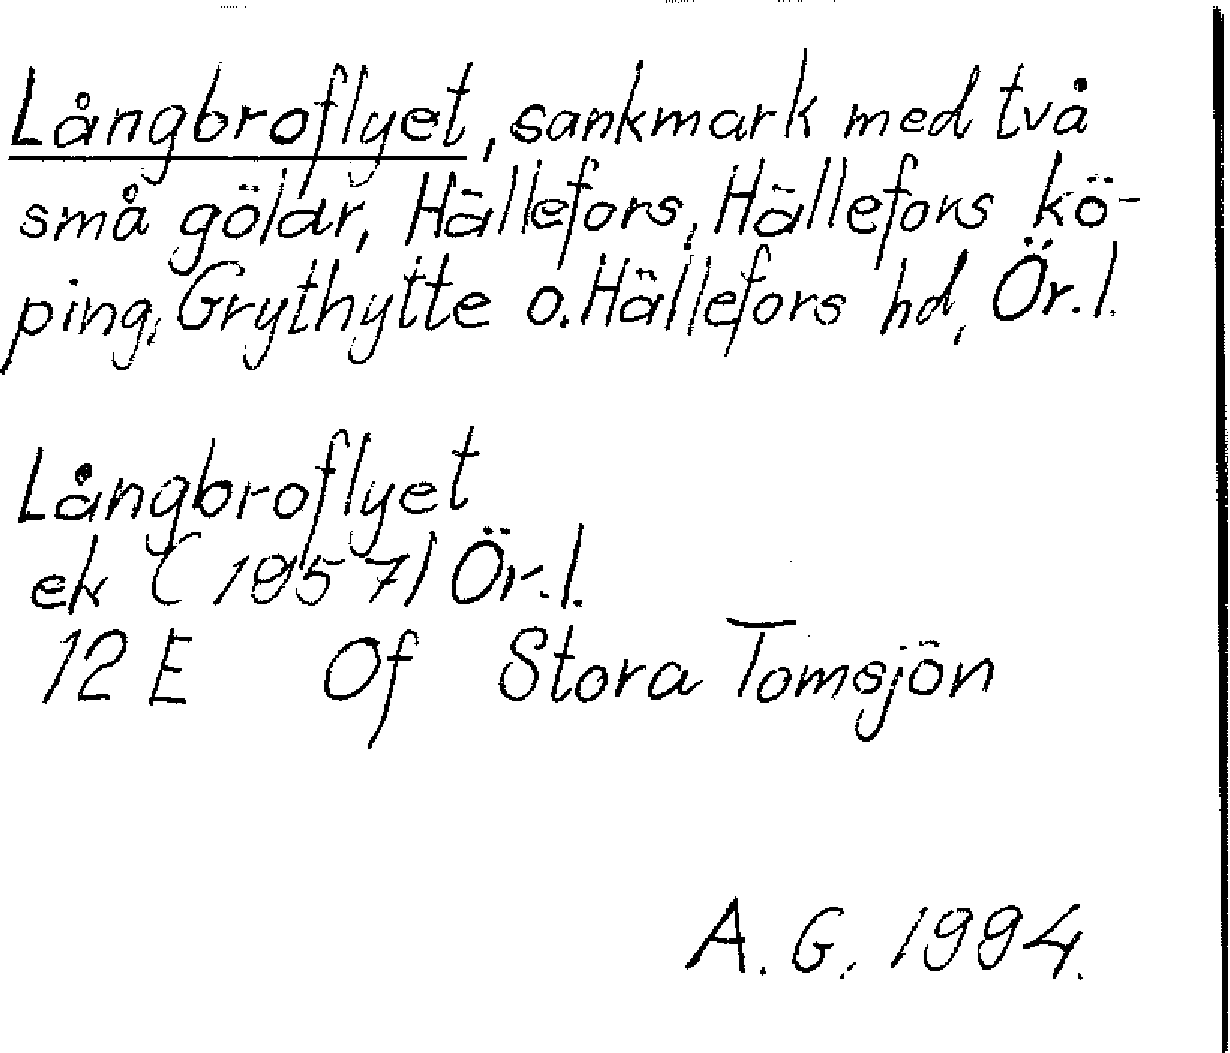 Långbroflyet, sankmark med två
små gölar, Hällefors, Hällefors kö-
ping, Grythytte o. Hällefors hd, Ör. l.
Långbroflyet
ek (1957) Ör. l.
12 E Of Stora Tomsjön
A. G. 1994.